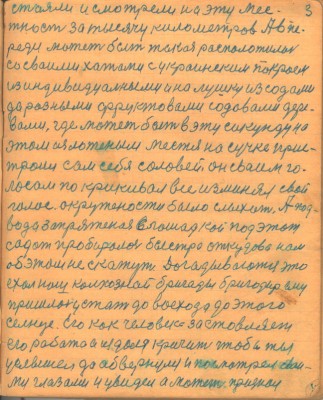 3
стояли и смотрели на эту мес-
тность за тысячу километров А впе-
реди может быть такая расположилась
со своими хатами с украинским покроем
и индивидуальными на лушку и содами
даровными фруктовами содовами дере-
вами, где может быть в эту сикунду на
этом изложеным места на сучке прис-
троил сам себя соловей, он сваим го-
лосам покрикивал все изменял свой
голос. окружености было слыхат. А под-
вода запряженая Слошадкой под этот
садот пробиралос быстро откудова нам
об этом не скажут. Догадываются это
ехал наш колхозной бригады бригадир ему
пришлось устат до восхода до этого
солнце. Его как человека заставляет
его работа и неволя кричит чтоб и ты
услышел да обвернулся и посмотрел сваи-
ми глазами и увидел а может признал